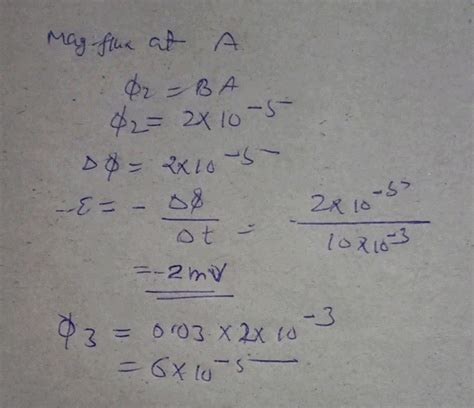 Mag. flux at A
ϕ₂ = BA
ϕ₂ = 2×10⁻⁵
Δϕ = 2×10⁻⁵
-ε = - Δϕ/Δt = - 2×10⁻⁵/10×10⁻³
= -2mV
ϕ₃ = 0.03 × 2×10⁻³
= 6×10⁻⁵